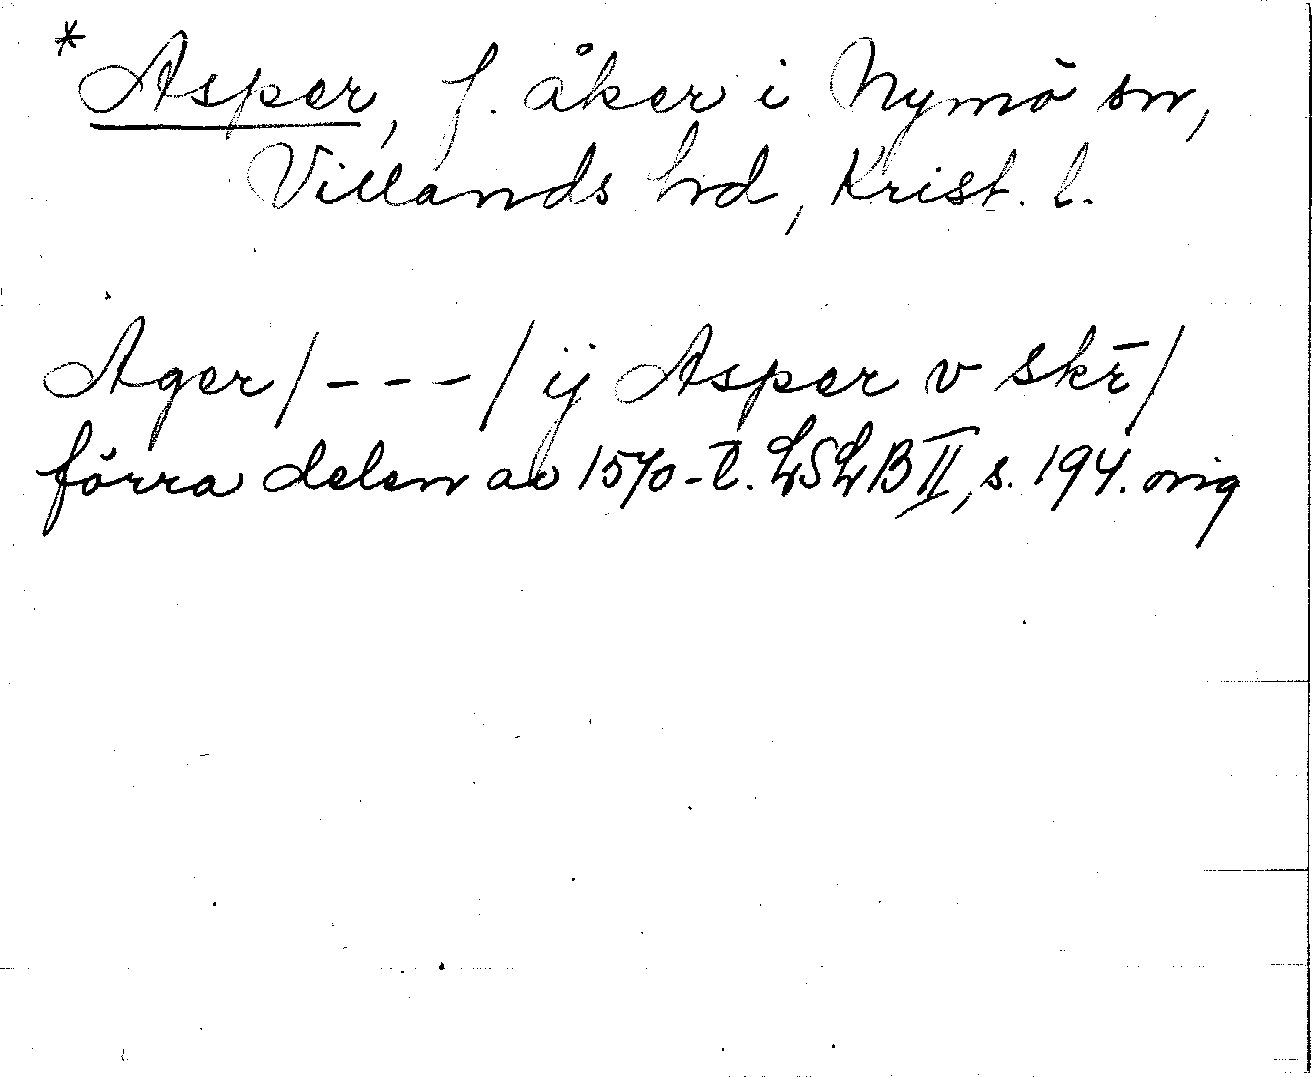 *Asper, f. åker i Nymö sn,
Villands hd, Krist. l.
Ager/---/ij Asper v skr̄/
förra delen av 1570-t. LSLB II, s. 194. orig